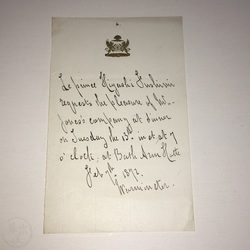 Le prince Higashi Fushimi
requests the pleasure of Mr.
Jones's company at dinner
on Tuesday the 13th inst at 7
o'clock, at Bath Arm Hotle
Feb 7th 1872.
Warminster.